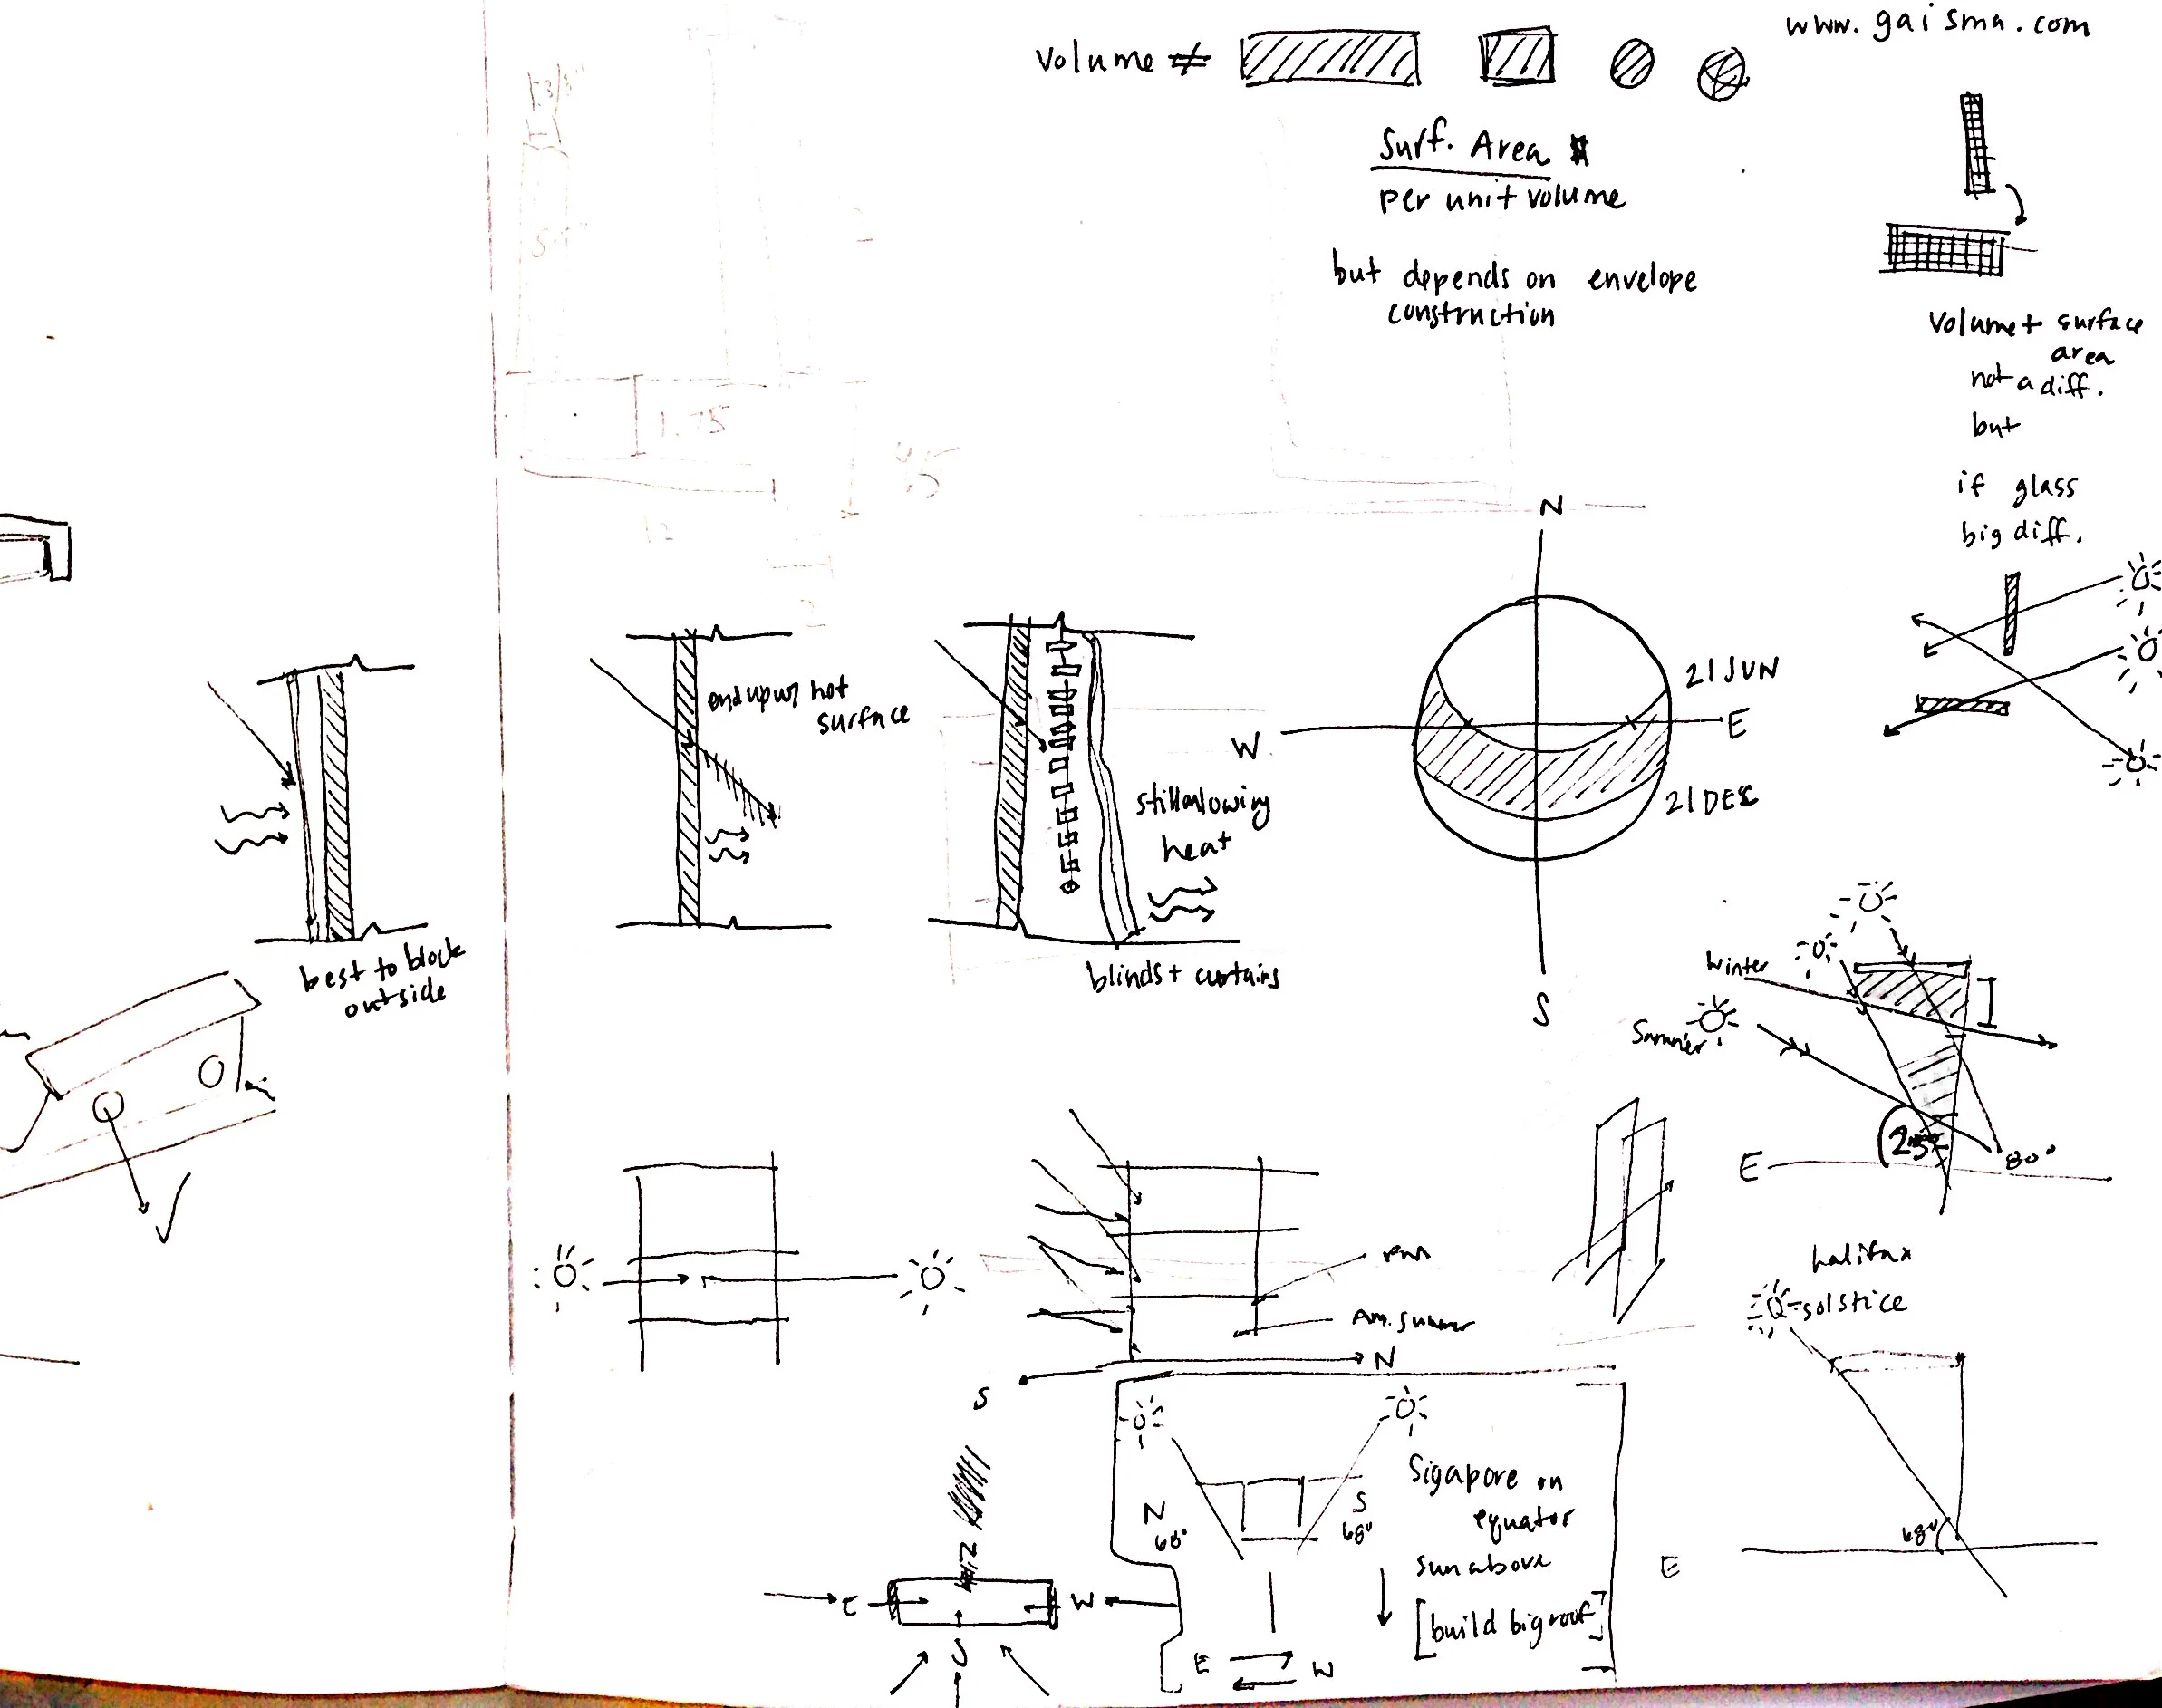 www.gaisma.com
Volume ≠
Surf. Area
per unit volume
but depends on envelope
construction
Volume + surface
area
not a diff.
but
if glass
big diff.
N
W
E
S
21 JUN
21 DEC
end up w/ hot
surface
still allowing
heat
blinds + curtains
best to block
outside
Winter
Summer
25°
80°
E
halifax
solstice
68°
E
Am. Summer
N
S
N
68°
S
68°
Sigapore on
equator
sun above
[build big roof]
E
W
E
W
S
1.75
12